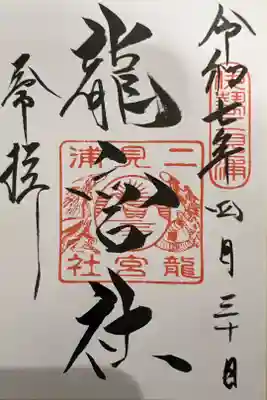 令和七年四月三十日
龍宮社
奉拝
二見浦
龍宮社